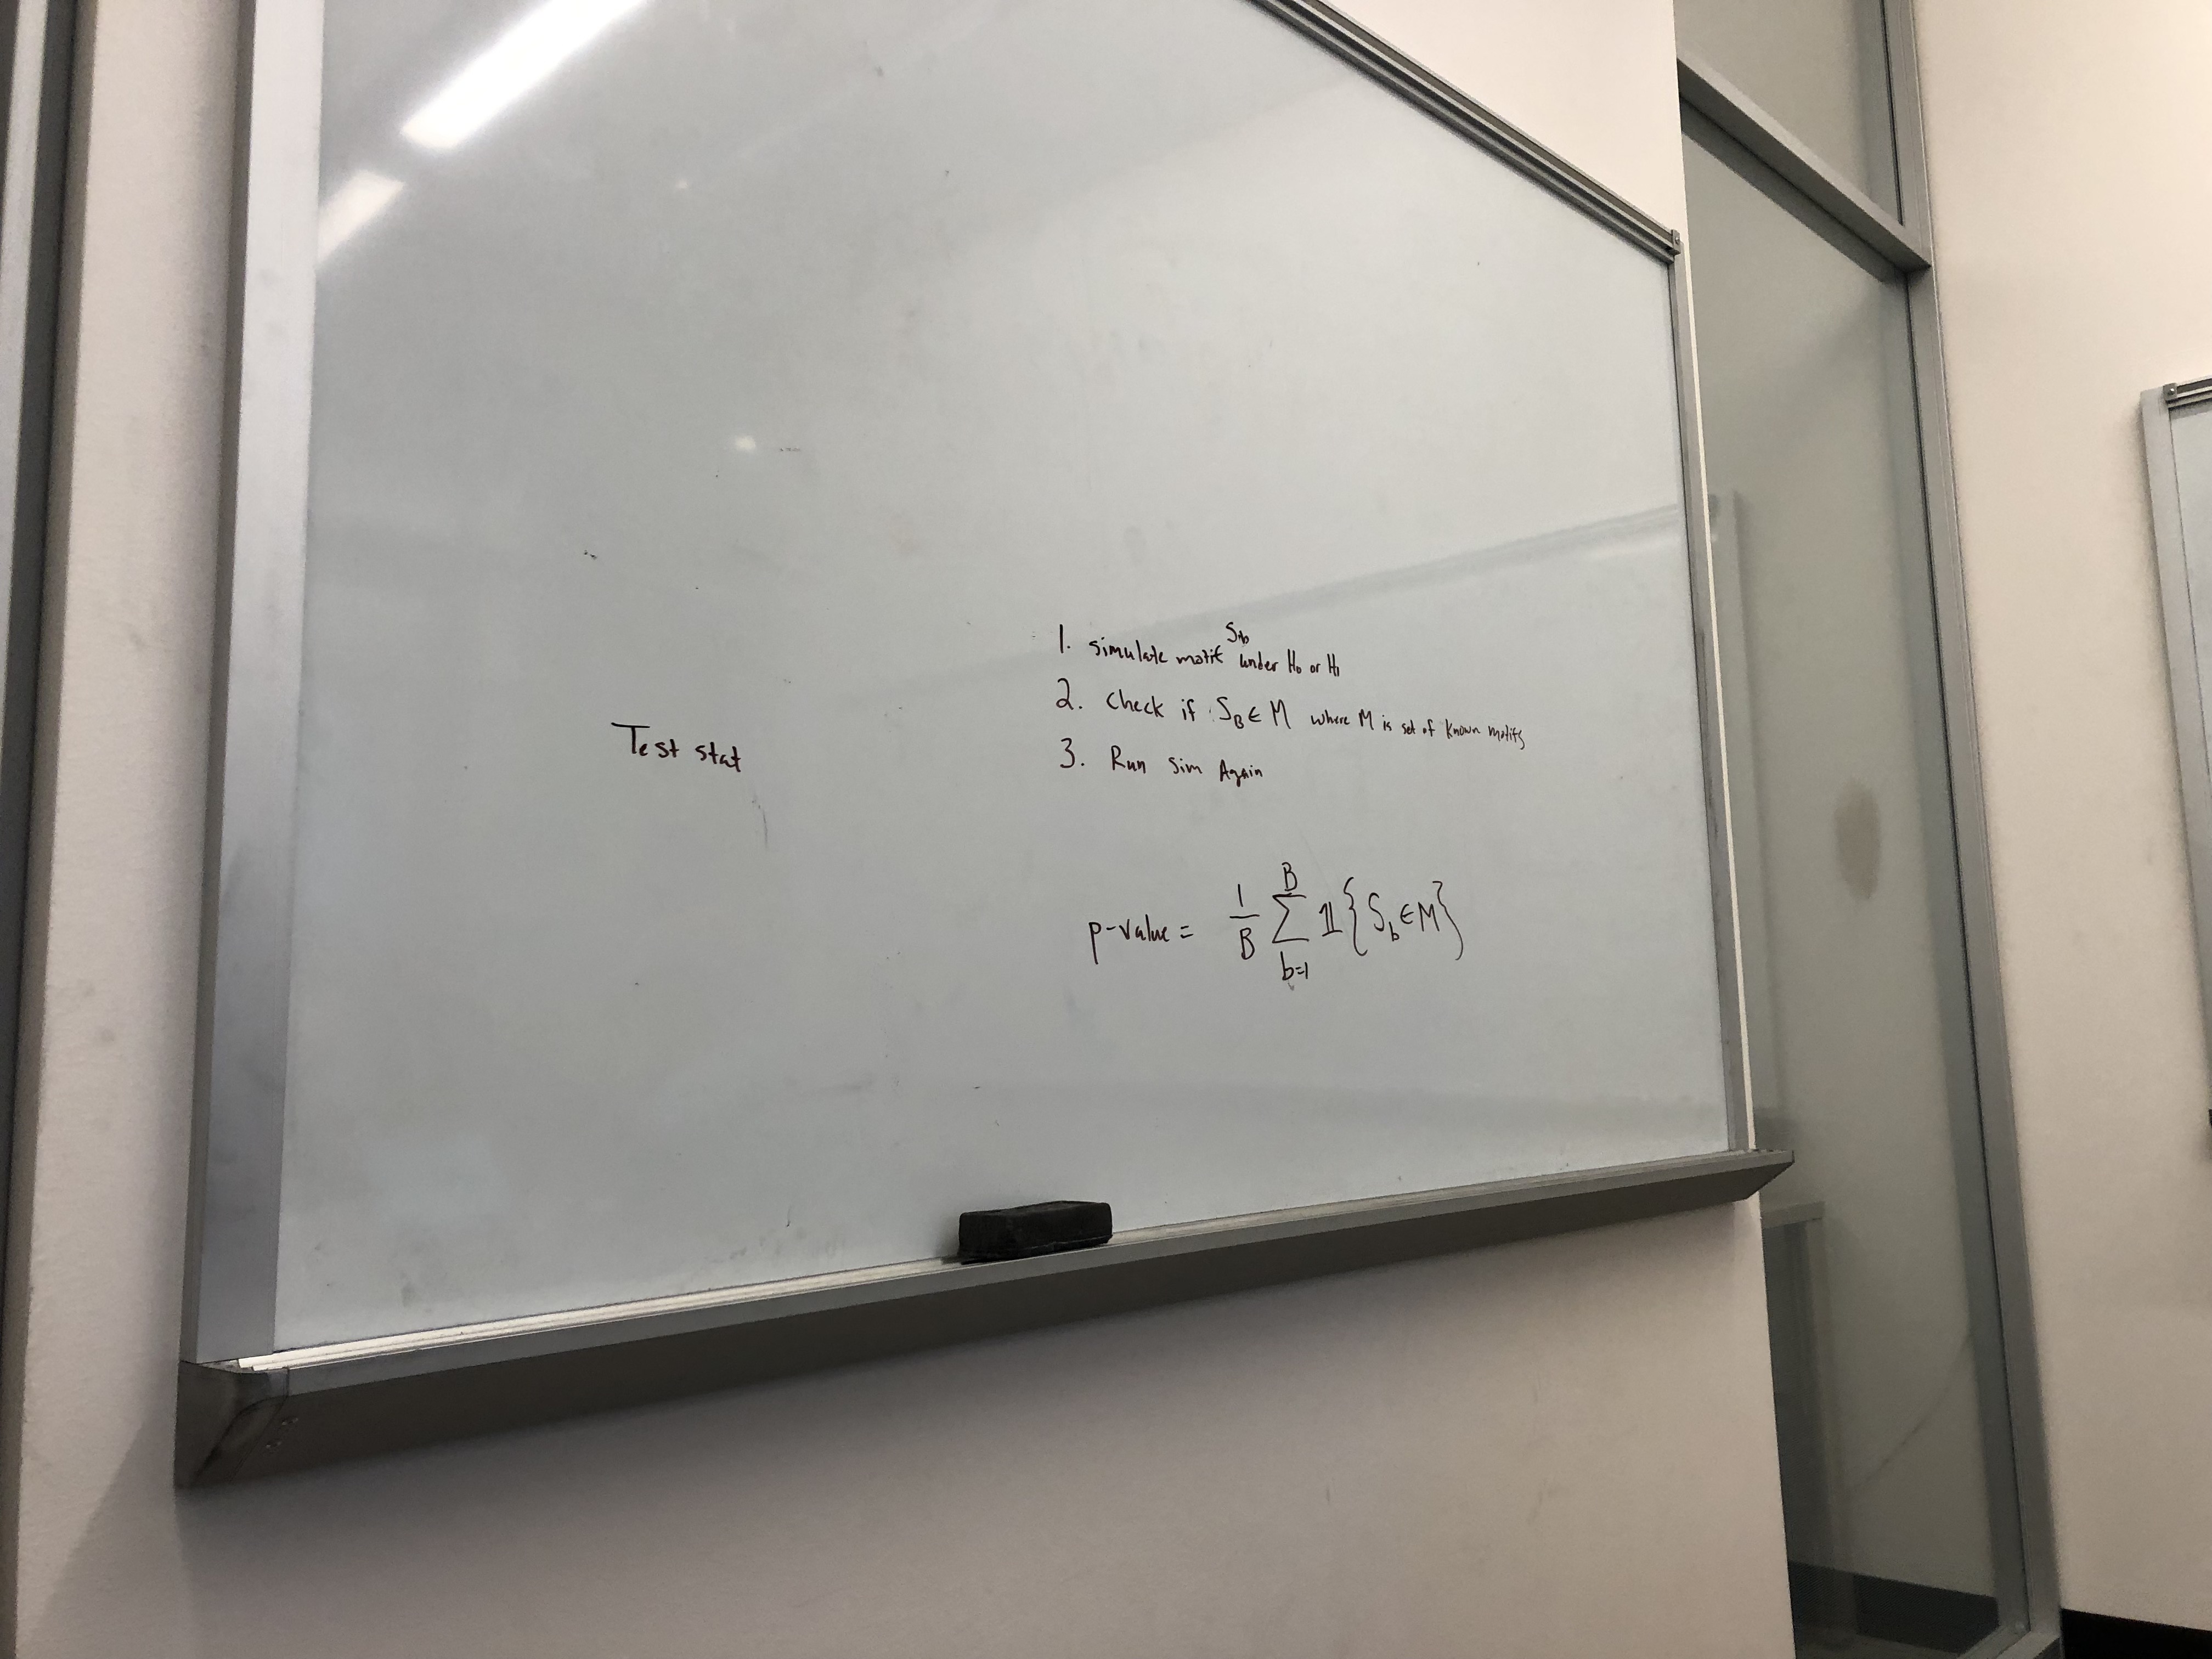 Test stat
1. Simulate motif S_b under H₀ or H₁
2. Check if S_B ∈ M where M is set of known motifs
3. Run Sim Again
p-value = 1/B ∑_{b=1}^{B} 𝟙{S_b ∈ M}